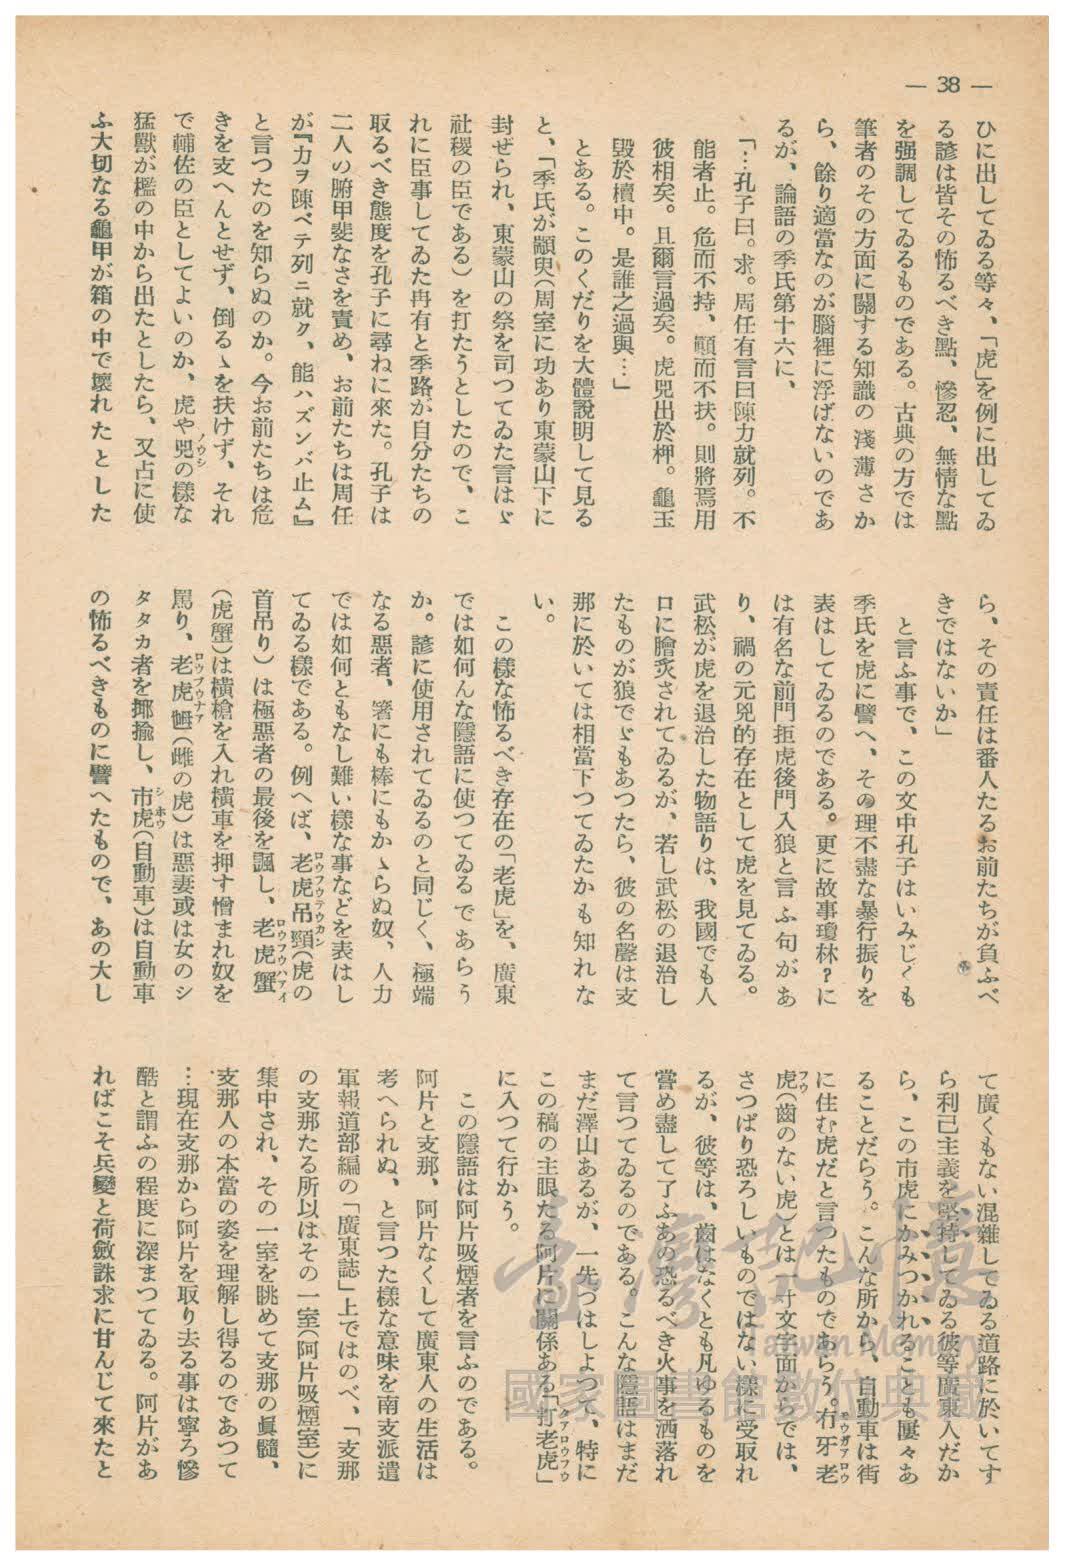 — 38 —
ひに出してゐる等々、「虎」を例に出してゐ
る諺は皆その怖るべき點、慘忍、無情な點
を强調してゐるものである。古典の方では
筆者のその方面に關する知識の淺薄さか
ら、餘り適當なのが腦裡に浮ばないのであ
るが、論語の季氏第十六に、
「…孔子曰。求。周任有言曰陳力就列。不
能者止。危而不持、顚而不扶。則將焉用
彼相矣。且爾言過矣。虎兕出於柙。龜玉
毀於櫝中。是誰之過與…」
とある。このくだりを大體說明して見る
と、「季氏が顓臾(周室に功あり東蒙山下に
封ぜられ、東蒙山の祭を司つてゐた言はゞ
社稷の臣である)を打たうとしたので、こ
れに臣事してゐた冉有と季路が自分たちの
取るべき態度を孔子に尋ねに來た。孔子は
二人の腑甲斐なさを責め、お前たちは周任
が『力ヲ陳ベテ列ニ就ク、能ハズンバ止ム』
と言つたのを知らぬのか。今お前たちは危
きを支へんとせず、倒るゝを扶けず、それ
で輔佐の臣としてよいのか、虎や兕の樣な
ノウシ
猛獸が檻の中から出たとしたら、又占に使
ふ大切なる龜甲が箱の中で壞れたとした
ら、その責任は番人たるお前たちが負ふべ
きではないか」
と言ふ事で、この文中孔子はいみじくも
季氏を虎に譬へ、その理不盡な暴行振りを
表はしてゐるのである。更に故事瓊林?に
は有名な前門拒虎後門入狼と言ふ句があ
り、禍の元兇的存在として虎を見てゐる。
武松が虎を退治した物語りは、我國でも人
口に膾炙されてゐるが、若し武松の退治し
たものが狼でゞもあつたら、彼の名聲は支
那に於いては相當下つてゐたかも知れな
い。
この樣な怖るべき存在の「老虎」を、廣東
では如何んな隱語に使つてゐるであらう
か。諺に使用されてゐるのと同じく、極端
なる惡者、箸にも棒にもかゝらぬ奴、人力
では如何ともなし難い樣な事などを表はし
てゐる樣である。例へば、老虎吊頸(虎の
ロウフウテウカン
首吊り)は極惡者の最後を諷し、老虎蟹
ロウフウハアイ
(虎蟹)は橫槍を入れ橫車を押す憎まれ奴を
罵り、老虎乸(雌の虎)は惡妻或は女のシ
ロウフウナア
タタカ者を揶揄し、市虎(自動車)は自動車
シホウ
の怖るべきものに譬へたもので、あの大し
て廣くもない混雜してゐる道路に於いてす
ら利己主義を堅持してゐる彼等廣東人だか
ら、この市虎にかみつかれることも屢々あ
ることだらう。こんな所から、自動車は街
に住む虎だと言つたものであらう。冇牙老
モウガアロウ
虎(齒のない虎)とは一寸文字面からでは、
フウ
さつぱり恐ろしいものではない樣に受取れ
るが、彼等は、齒はなくとも凡ゆるものを
嘗め盡して了ふあの恐るべき火事を洒落れ
て言つてゐるのである。こんな隱語はまだ
まだ澤山あるが、一先づはしよつて、特に
この稿の主眼たる阿片に關係ある「打老虎」
タアロウフウ
に入つて行かう。
この隱語は阿片吸煙者を言ふのである。
阿片と支那、阿片なくして廣東人の生活は
考へられぬ、と言つた樣な意味を南支派遣
軍報道部編の「廣東誌」上ではのべ、「支那
の支那たる所以はその一室(阿片吸煙室)に
集中され、その一室を眺めて支那の眞髓、
支那人の本當の姿を理解し得るのであつて
…現在支那から阿片を取り去る事は寧ろ慘
酷と謂ふの程度に深まつてゐる。阿片があ
ればこそ兵變と苛斂誅求に甘んじて來たと
臺灣記憶
Taiwan Memory
國家圖書館數位典藏